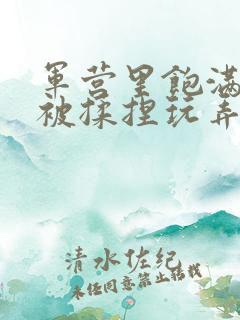 军营里饱满
被揉捏玩弄
清水佐纪
未经同意禁止转载